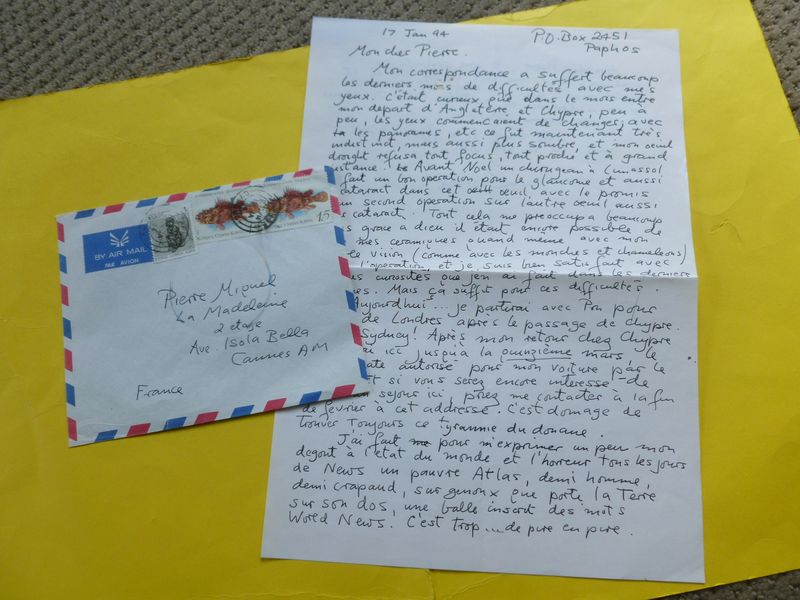 17 Jan 94
P.O. Box 2451
Paphos
Mon cher Pierre.
Mon correspondance a suffert beaucoup
les derniers mois de difficultés avec mes
yeux. C'était curieux que dans le mois entre
mon depart d'Angletère et Chypre, peu à
peu, les yeux commencaient de changes, avec
les panoramas, etc ce fut maintenant très
indistinct, mais aussi plus sombre, et mon oeuil
droght refusa tout focus, tout proche et à grand
distance. Avant Noel un chirurgean à Limassol
fait un bon operation pour le glaucome et aussi
cataract dans cet oeuil, avec le promis
un second operation sur l'autre oeuil aussi
cataract. Tout cela me preoccupa beaucoup
grace a dieu il était encore possible de
mes ceramiques quand meme avec mon
vision (comme avec les monches et chameleons)
l'operation, et je suis bien satisfait avec
curiosités que j'en ai fait dans les derniere
Mais ça suffit pour ces difficultés.
Aujourdhui... je partirai avec Pon pour
de Londres après le passage de Chypre.
Sydney! Après mon retour chez Chypre
ici jusqu'à la quinzième mars, le
date autorisé pour mon voiture par le
si vous serez encore interessé de
sejour ici, priez me contacter à la fin
de fevrier à cet addresse. C'est domage de
trouver toujours ce tyrannie du douane.
J'ai fait pour m'exprimer un peu mon
degout à l'état du monde et l'horreur tous les jours
de News un pauvre Atlas, demi homme,
demi crapaud, sur genoux que porte la Terre
sur son dos, une balle inscrit des mots
World News. C'est trop... de pire en pire.
15
BY AIR MAIL
PAR AVION
Pierre Miquel
La Madeleine
2 etage
Ave. Isola Bella
Cannes AM
France